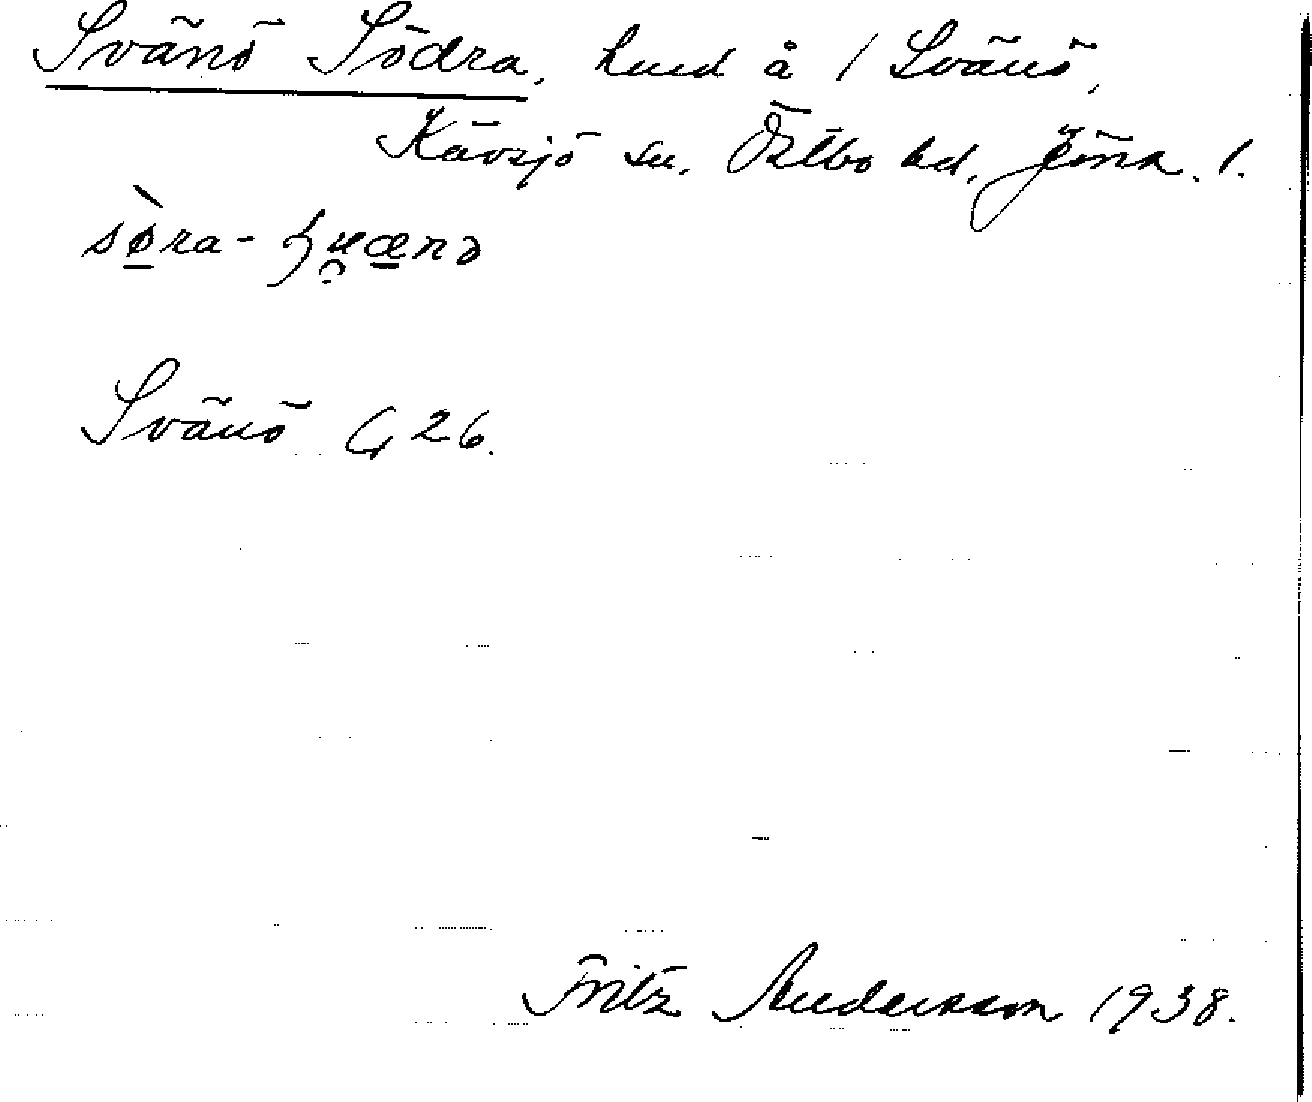 Svänö Södra, hmd å 1 Svänö,
Kävsjö sn. Östbo hd, Jönk. l.
sø̀ra-
Svänö G 26.
Fritz Andersson 1938.